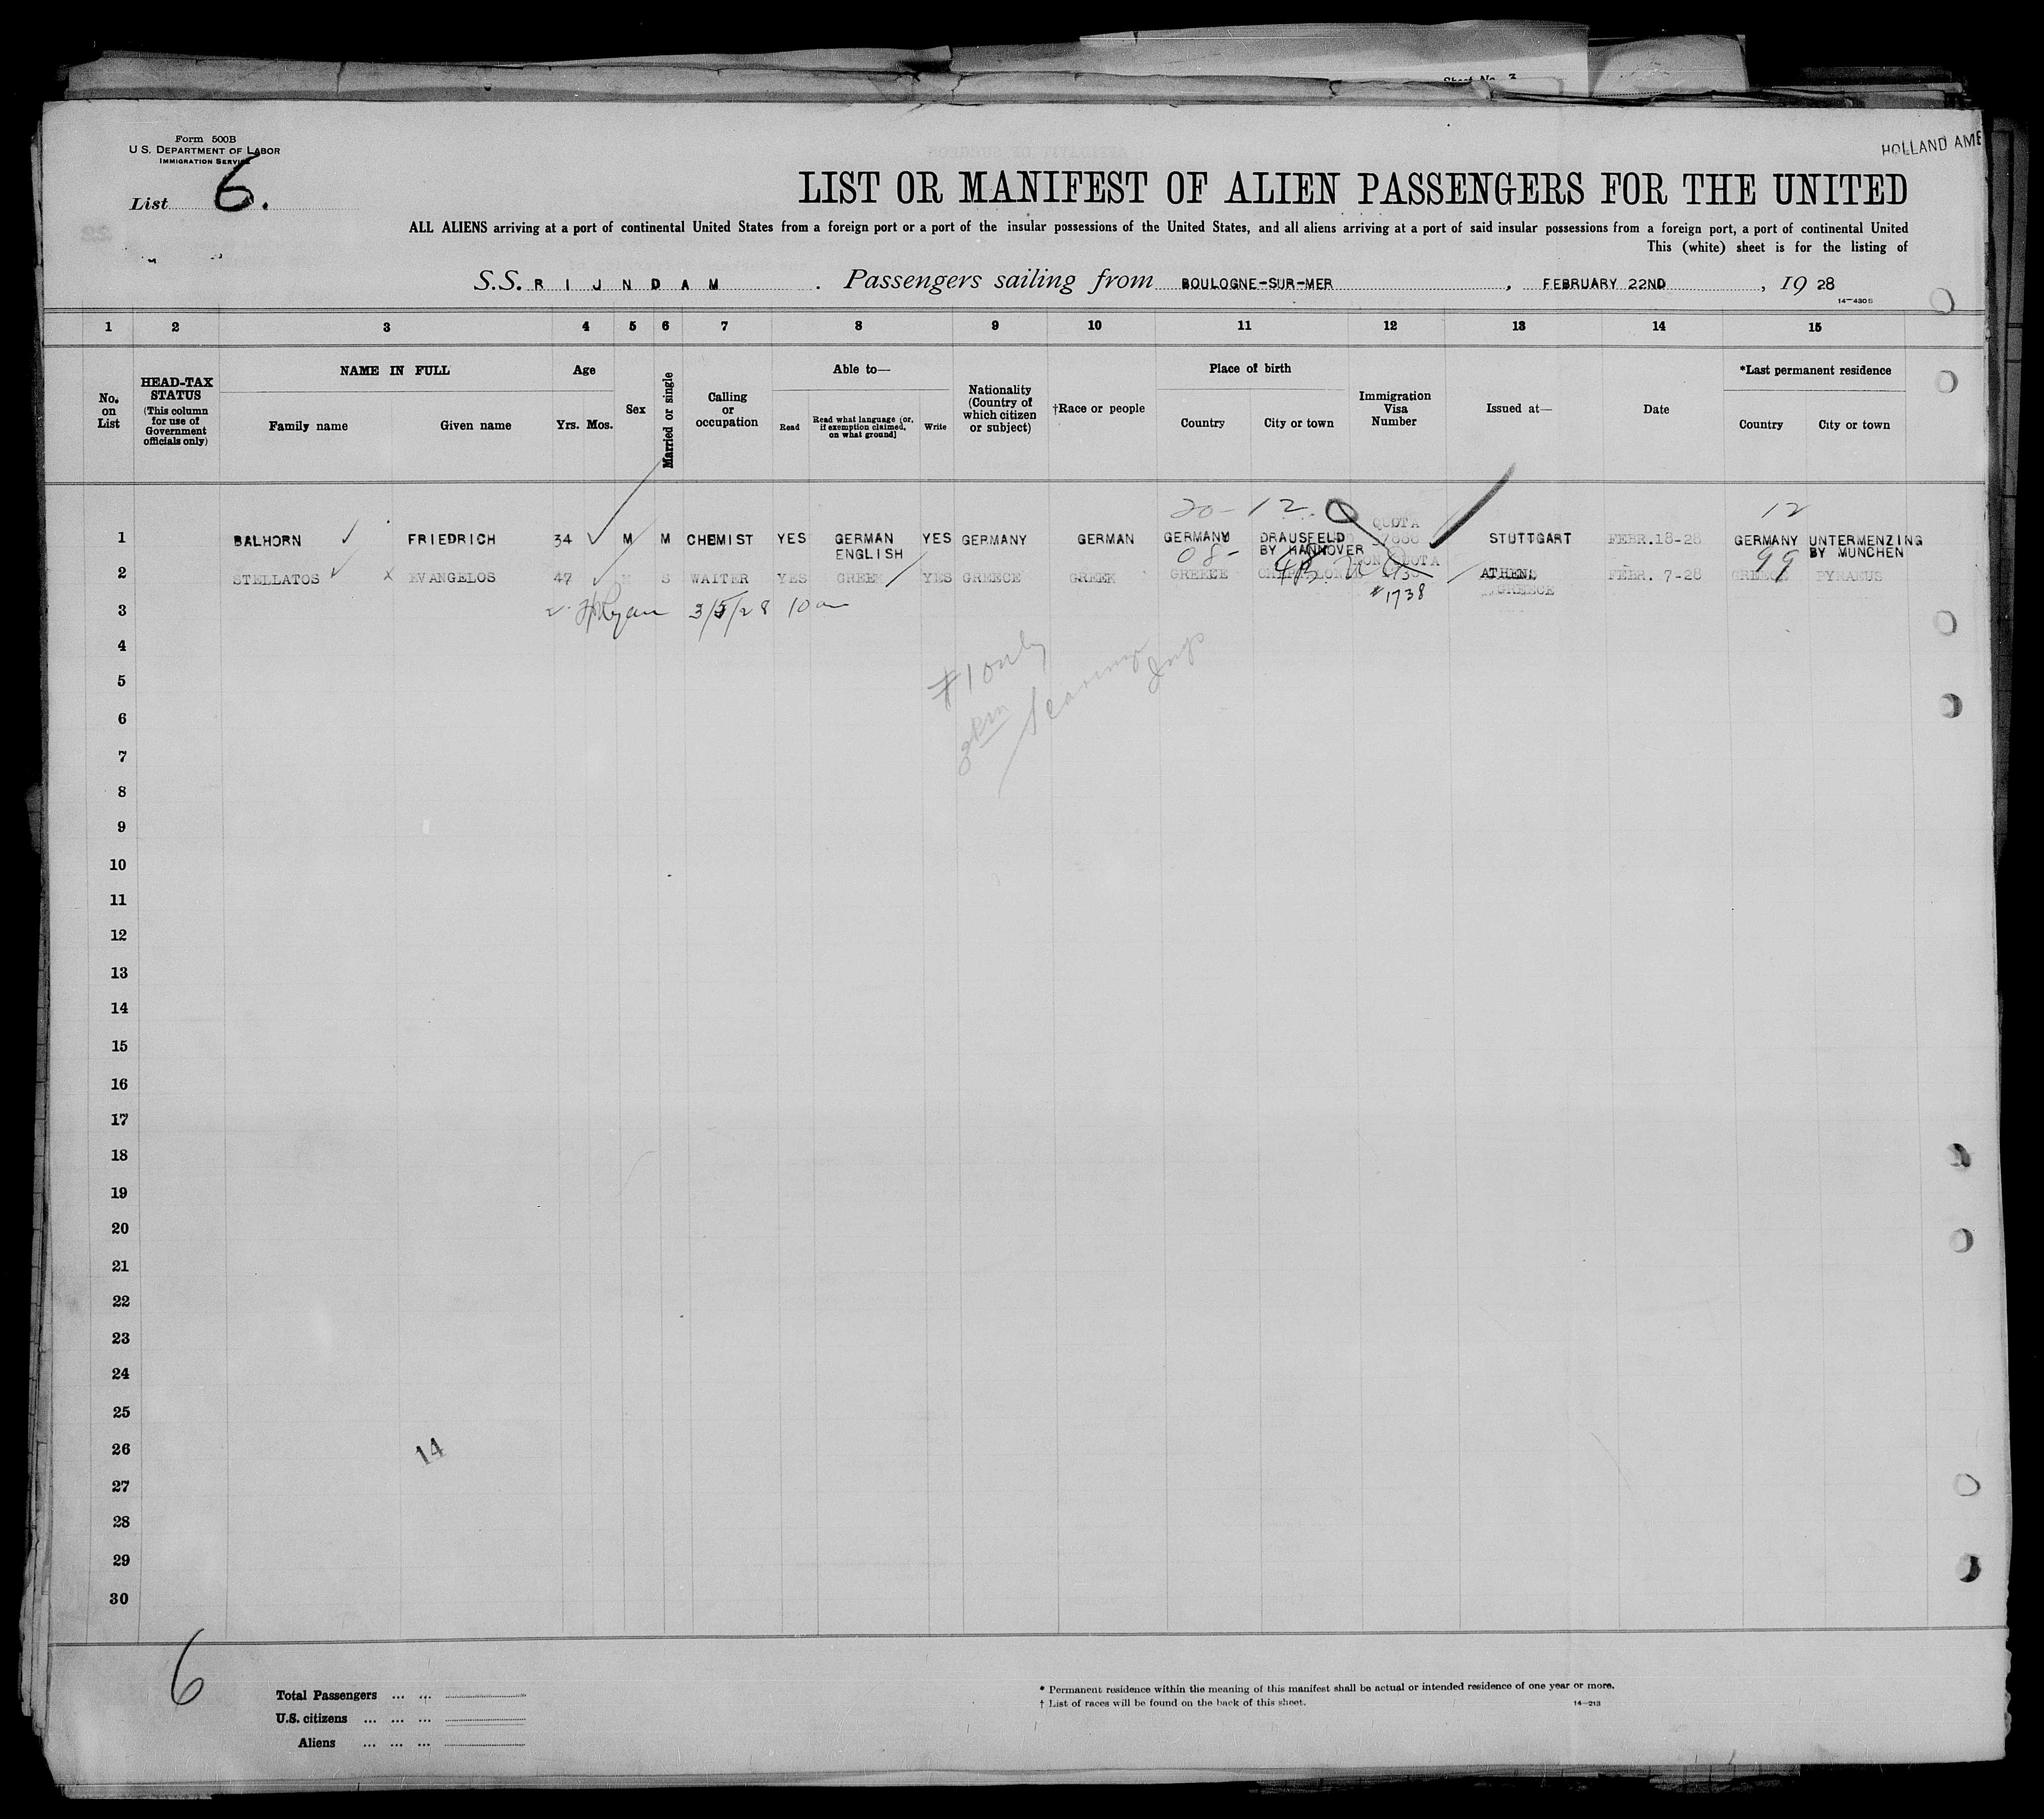 Form 500B
U. S. DEPARTMENT OF LABOR
IMMIGRATION SERVICE
HOLLAND AME
List 6.
LIST OR MANIFEST OF ALIEN PASSENGERS FOR THE UNITED
ALL ALIENS arriving at a port of continental United States from a foreign port or a port of the insular possessions of the United States, and all aliens arriving at a port of said insular possessions from a foreign port, a port of continental United
This (white) sheet is for the listing of
S.S. RIJNDAM. Passengers sailing from BOULOGNE-SUR-MER, FEBRUARY 22ND, 19 28
14-430B
1 2 3 4 5 6 7 8 9 10 11 12 13 14 15
No. on List
HEAD-TAX STATUS (This column for use of Government officials only)
NAME IN FULL
Family name Given name
Age
Yrs. Mos.
Sex
Married or single
Calling or occupation
Able to—
Read
Read what language [or, if exemption claimed, on what ground]
Write
Nationality (Country of which citizen or subject)
†Race or people
Place of birth
Country City or town
Immigration Visa Number
Issued at—
Date
*Last permanent residence
Country City or town
20- 12. 12
QUOTA
1 BALHORN FRIEDRICH 34 M M CHEMIST YES GERMAN YES GERMANY GERMAN GERMANY DRAUSFELD STUTTGART FEBR.18-28 GERMANY UNTERMENZING
ENGLISH BY HANNOVER BY MUNCHEN
08- 99
NON QUOTA
2 STELLATOS X EVANGELOS 47 M S WAITER YES GREEK YES GREECE GREEK GREECE ATHENS FEBR. 7-28 GREECE PYRAEUS
GREECE
#1738
3 Ryan 3/5/28 10 am
#1 only
4
5
6
7
8
9
10
11
12
13
14
15
16
17
18
19
20
21
22
23
24
25
26
14
27
28
29
30
6
Total Passengers ... ...
U.S. citizens ... ... ...
Aliens ... ... ...
* Permanent residence within the meaning of this manifest shall be actual or intended residence of one year or more.
† List of races will be found on the back of this sheet.
14-213